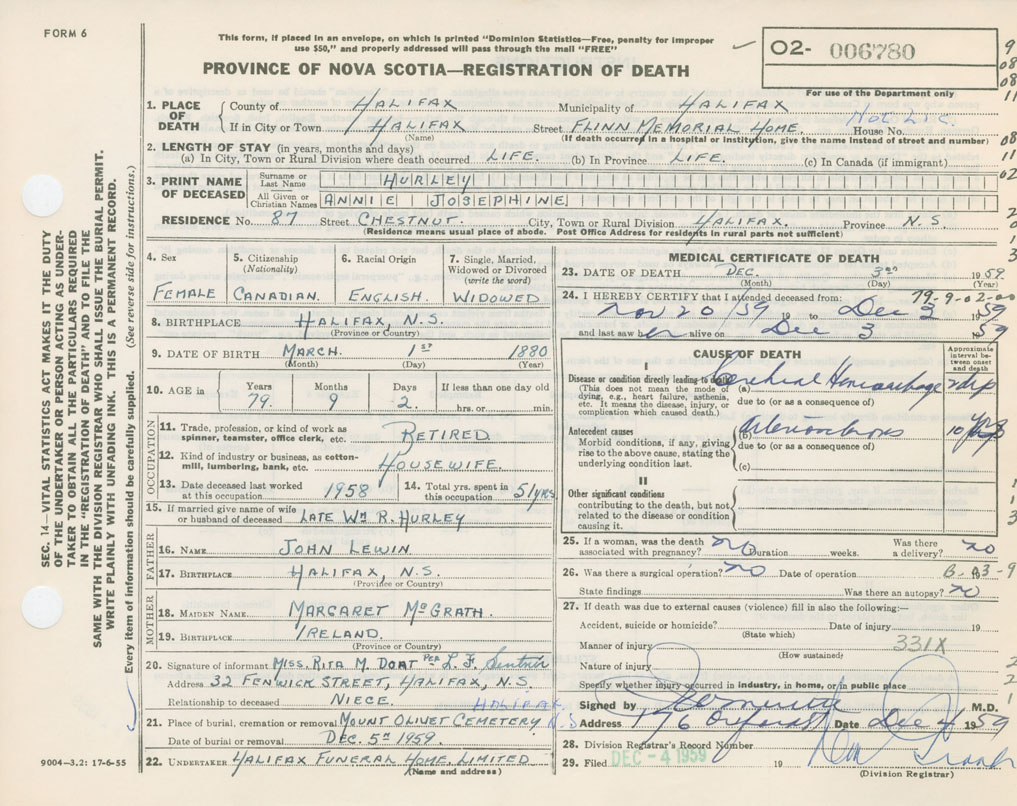 FORM 6
This form, if placed in an envelope, on which is printed "Dominion Statistics—Free, penalty for improper
use $50," and properly addressed will pass through the mail "FREE"
02- 006780
PROVINCE OF NOVA SCOTIA—REGISTRATION OF DEATH
For use of the Department only
1. PLACE OF DEATH
County of HALIFAX Municipality of HALIFAX
If in City or Town HALIFAX Street FLINN MEMORIAL HOME. House No. Not Lic.
(Name) (If death occurred in a hospital or institution, give the name instead of street and number)
2. LENGTH OF STAY (in years, months and days)
(a) In City, Town or Rural Division where death occurred LIFE. (b) In Province LIFE. (c) In Canada (if immigrant)
3. PRINT NAME OF DECEASED
Surname or Last Name HURLEY
All Given or Christian Names ANNIE JOSEPHINE
RESIDENCE No. 87 Street CHESTNUT. City, Town or Rural Division HALIFAX. Province N.S.
(Residence means usual place of abode. Post Office Address for residents in rural parts not sufficient)
4. Sex
FEMALE
5. Citizenship (Nationality)
CANADIAN.
6. Racial Origin
ENGLISH.
7. Single, Married, Widowed or Divorced (write the word)
WIDOWED
8. BIRTHPLACE HALIFAX, N.S.
(Province or Country)
9. DATE OF BIRTH MARCH. 1ST 1880
(Month) (Day) (Year)
10. AGE in Years Months Days If less than one day old
79. 9 2. hrs. or min.
OCCUPATION
11. Trade, profession, or kind of work as spinner, teamster, office clerk, etc. RETIRED.
12. Kind of industry or business, as cotton-mill, lumbering, bank, etc. HOUSEWIFE.
13. Date deceased last worked at this occupation 1958
14. Total yrs. spent in this occupation 51 YRS.
15. If married give name of wife or husband of deceased LATE WM R. HURLEY
FATHER
16. NAME JOHN LEWIN.
17. BIRTHPLACE HALIFAX, N.S.
(Province or Country)
MOTHER
18. MAIDEN NAME MARGARET McGRATH.
19. BIRTHPLACE IRELAND.
(Province or Country)
20. Signature of informant MISS. RITA M. DOAT PER L. F.
Address 32 FENWICK STREET, HALIFAX, N.S.
Relationship to deceased NIECE.
21. Place of burial, cremation or removal MOUNT OLIVET CEMETERY HALIFAX N.S
Date of burial or removal DEC. 5TH 1959.
22. UNDERTAKER HALIFAX FUNERAL HOME, LIMITED
(Name and address)
MEDICAL CERTIFICATE OF DEATH
23. DATE OF DEATH DEC. 3RD 1959.
(Month) (Day) (Year)
79-9-02-00
24. I HEREBY CERTIFY that I attended deceased from:
Nov 20/59 19 to Dec 3 1959
and last saw her alive on Dec 3 1959
CAUSE OF DEATH
Approximate interval between onset and death
I
Disease or condition directly leading to death (a) Cerebral Hemorrhage
(This does not mean the mode of dying, e.g., heart failure, asthenia, etc. It means the disease, injury, or complication which caused death.)
due to (or as a consequence of)
Antecedent causes (b)
10 yrs
Morbid conditions, if any, giving rise to the above cause, stating the underlying condition last.
due to (or as a consequence of)
(c)
II
Other significant conditions
contributing to the death, but not related to the disease or condition causing it.
25. If a woman, was the death associated with pregnancy? no Duration weeks. Was there a delivery? no
26. Was there a surgical operation? no Date of operation 19
State findings Was there an autopsy? no
27. If death was due to external causes (violence) fill in also the following:—
Accident, suicide or homicide? Date of injury 19
(State which)
Manner of injury 331X
(How sustained)
Nature of injury
Specify whether injury occurred in industry, in home, or in public place
Signed by M.D.
Address 176 Oxford St Date Dec 4 1959
28. Division Registrar's Record Number
29. Filed DEC -4 1959 19
(Division Registrar)
SEC. 14—VITAL STATISTICS ACT MAKES IT THE DUTY
OF THE UNDERTAKER OR PERSON ACTING AS UNDER-
TAKER TO OBTAIN ALL THE PARTICULARS REQUIRED
IN THE "REGISTRATION OF DEATH" AND TO FILE THE
SAME WITH THE DIVISION REGISTRAR WHO SHALL ISSUE THE BURIAL PERMIT.
WRITE PLAINLY WITH UNFADING INK. THIS IS A PERMANENT RECORD.
Every item of information should be carefully supplied. (See reverse side for instructions.)
9004-3.2: 17-6-55